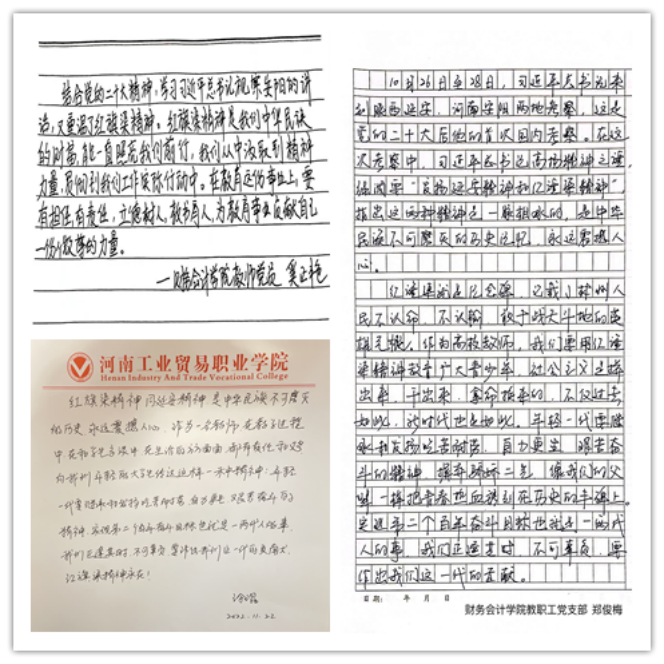 结合党的二十大精神，学习习近平总书记视察安阳的讲
话，又重温了红旗渠精神。红旗渠精神是我们中华民族
的财富，能一直照亮我们前行，我们从中汲取到精神
力量，贯彻到我们工作实际行动中。在教育这份事业上，要
有担任，有责任，立德树人，教书育人，为教育事业贡献自己
一份微薄的力量。
—财务会计学院教师党员
河南工业贸易职业学院
Henan Industry And Trade Vocational College
红旗渠精神同延安精神是中华民族不可磨灭
的历史 永远震撼人心。作为一名教师，在教学过程
中 在和学生交谈中 在生活的方方面面 都有责任和义务
向我们年轻的大学生传达这样一种中精神：年轻
一代要继承和发扬吃苦耐劳、自力更生、艰苦奋斗的
精神，实现第二个百年奋斗目标也就是一两代人的事，
我们正逢其时、不可辜负，要作出我们这一代的贡献。
红旗渠精神永在！
2022.11.22
10月26日至28日，习近平总书记来
到陕西延安、河南安阳两地考察，这是
党的二十大后他的首次国内考察。在这
次考察中，习近平总书记高扬精神之旗，
强调要"发扬延安精神和红旗渠精神"，
指出这两种精神是一脉相承的，是中华
民族不可磨灭的历史记忆，永远震撼人
心。
红旗渠就是纪念碑，记载了林州人
民不认命、不认输、敢于战天斗地的英
雄气概。作为高校教师，我们要用红旗
渠精神教育广大青少年，社会主义是拼
出来、干出来、拿命换来的，不仅过去
如此，新时代也是如此。年轻一代要继
承和发扬吃苦耐劳、自力更生、艰苦奋
斗的精神，摒弃骄娇二气，像我们的父
辈一样把青春热血镌刻在历史的丰碑上。
实现第二个百年奋斗目标也就是一两代
人的事，我们正逢其时、不可辜负，要
作出我们这一代的贡献。
日期： 年 月 日
财务会计学院教职工党支部 郑俊梅